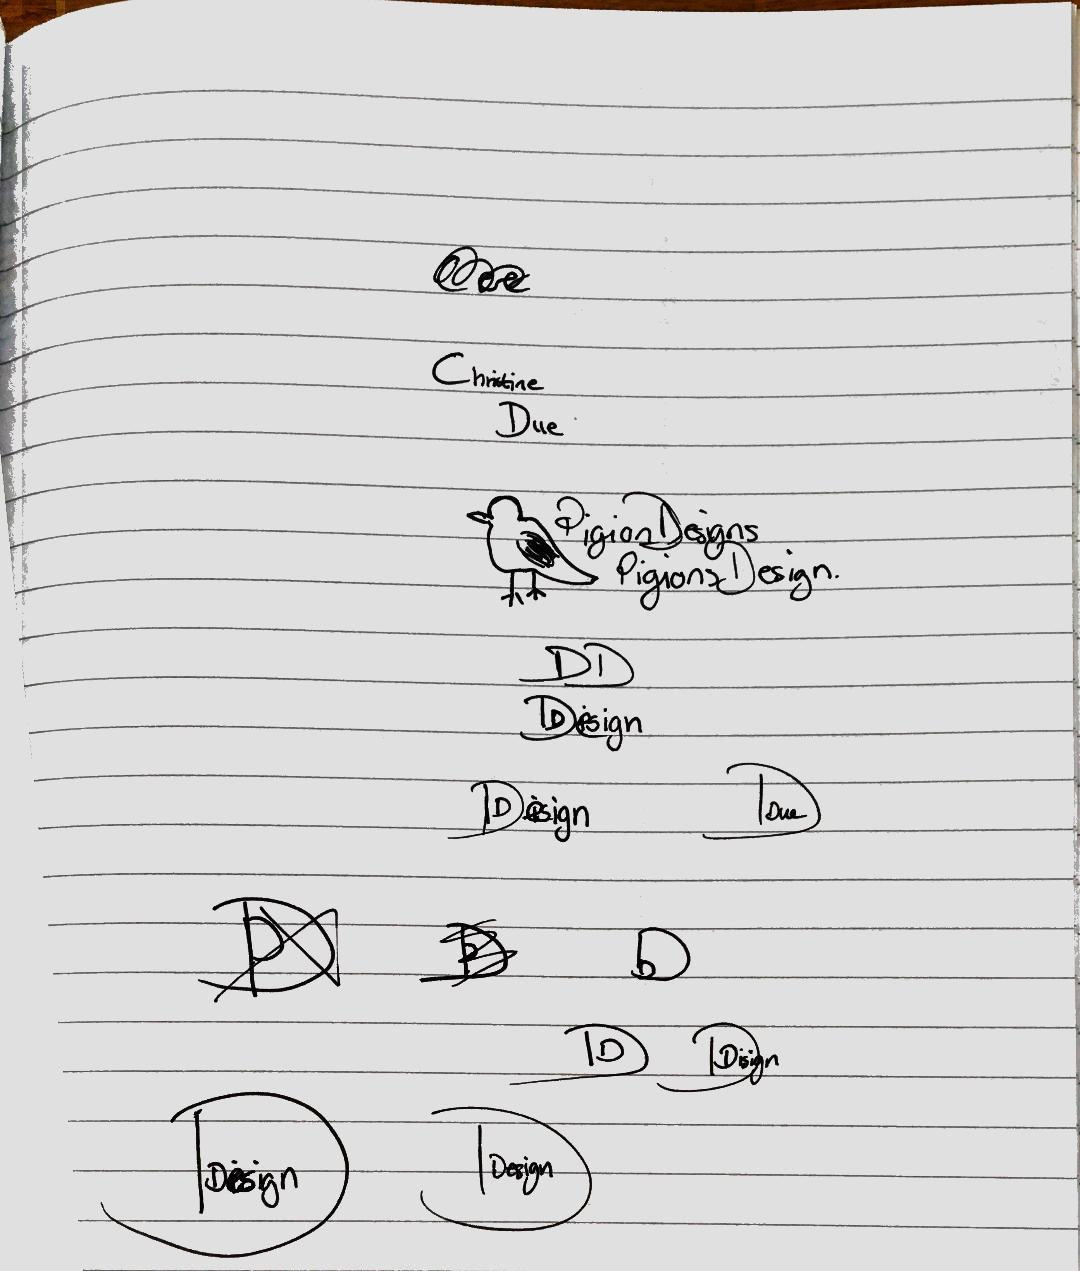 Christine
Due
Pigion Designs
Pigions Design.
DD
DDesign
DDesign
D Due
D
DD
D Disign
D Design
D Design